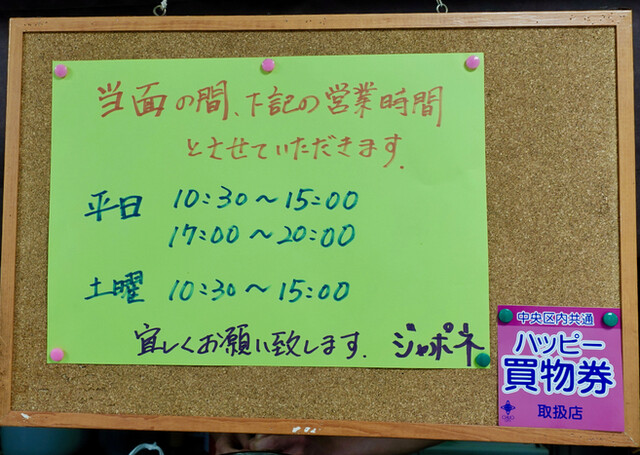 当面の間、下記の営業時間
とさせていただきます.
平日 10:30～15:00
17:00～20:00
土曜 10:30～15:00
宜しくお願い致します. ジャポネ
中央区内共通
ハッピー
買物券
取扱店